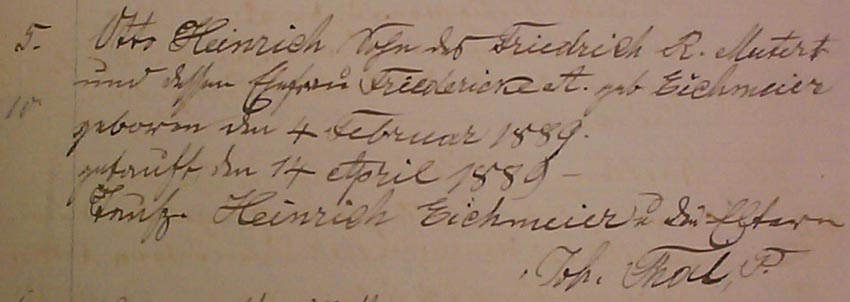 5. Otto Heinrich Sohn des Friedrich R. Mutert
und dessen Ehefrau Friedericke A. geb Eichmeier
geboren den 4 Februar 1889.
getauft den 14 April 1889 –
Taufz. Heinrich Eichmeier u die Eltern
Joh. Thal, P.